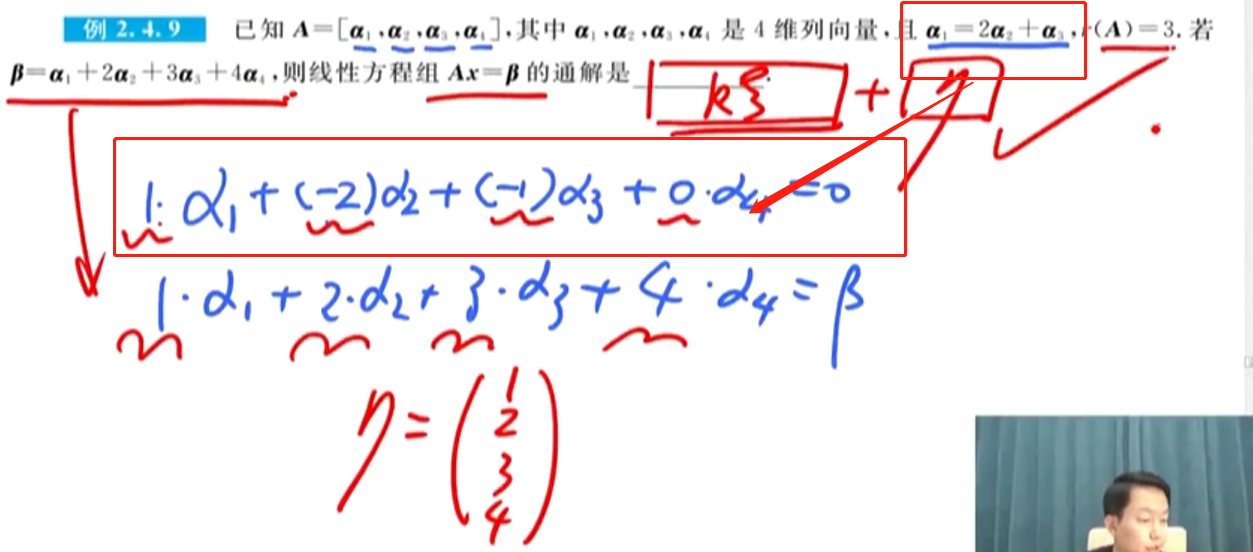 例 2.4.9 已知 A=[α₁,α₂,α₃,α₄],其中 α₁,α₂,α₃,α₄ 是 4 维列向量,且 α₁=2α₂+α₃,r(A)=3.若
β=α₁+2α₂+3α₃+4α₄,则线性方程组 Ax=β 的通解是 kξ + η
1·α₁+(-2)α₂+(-1)α₃+0·α₄=0
1·α₁+2·α₂+3·α₃+4·α₄=β
η=(1
2
3
4)